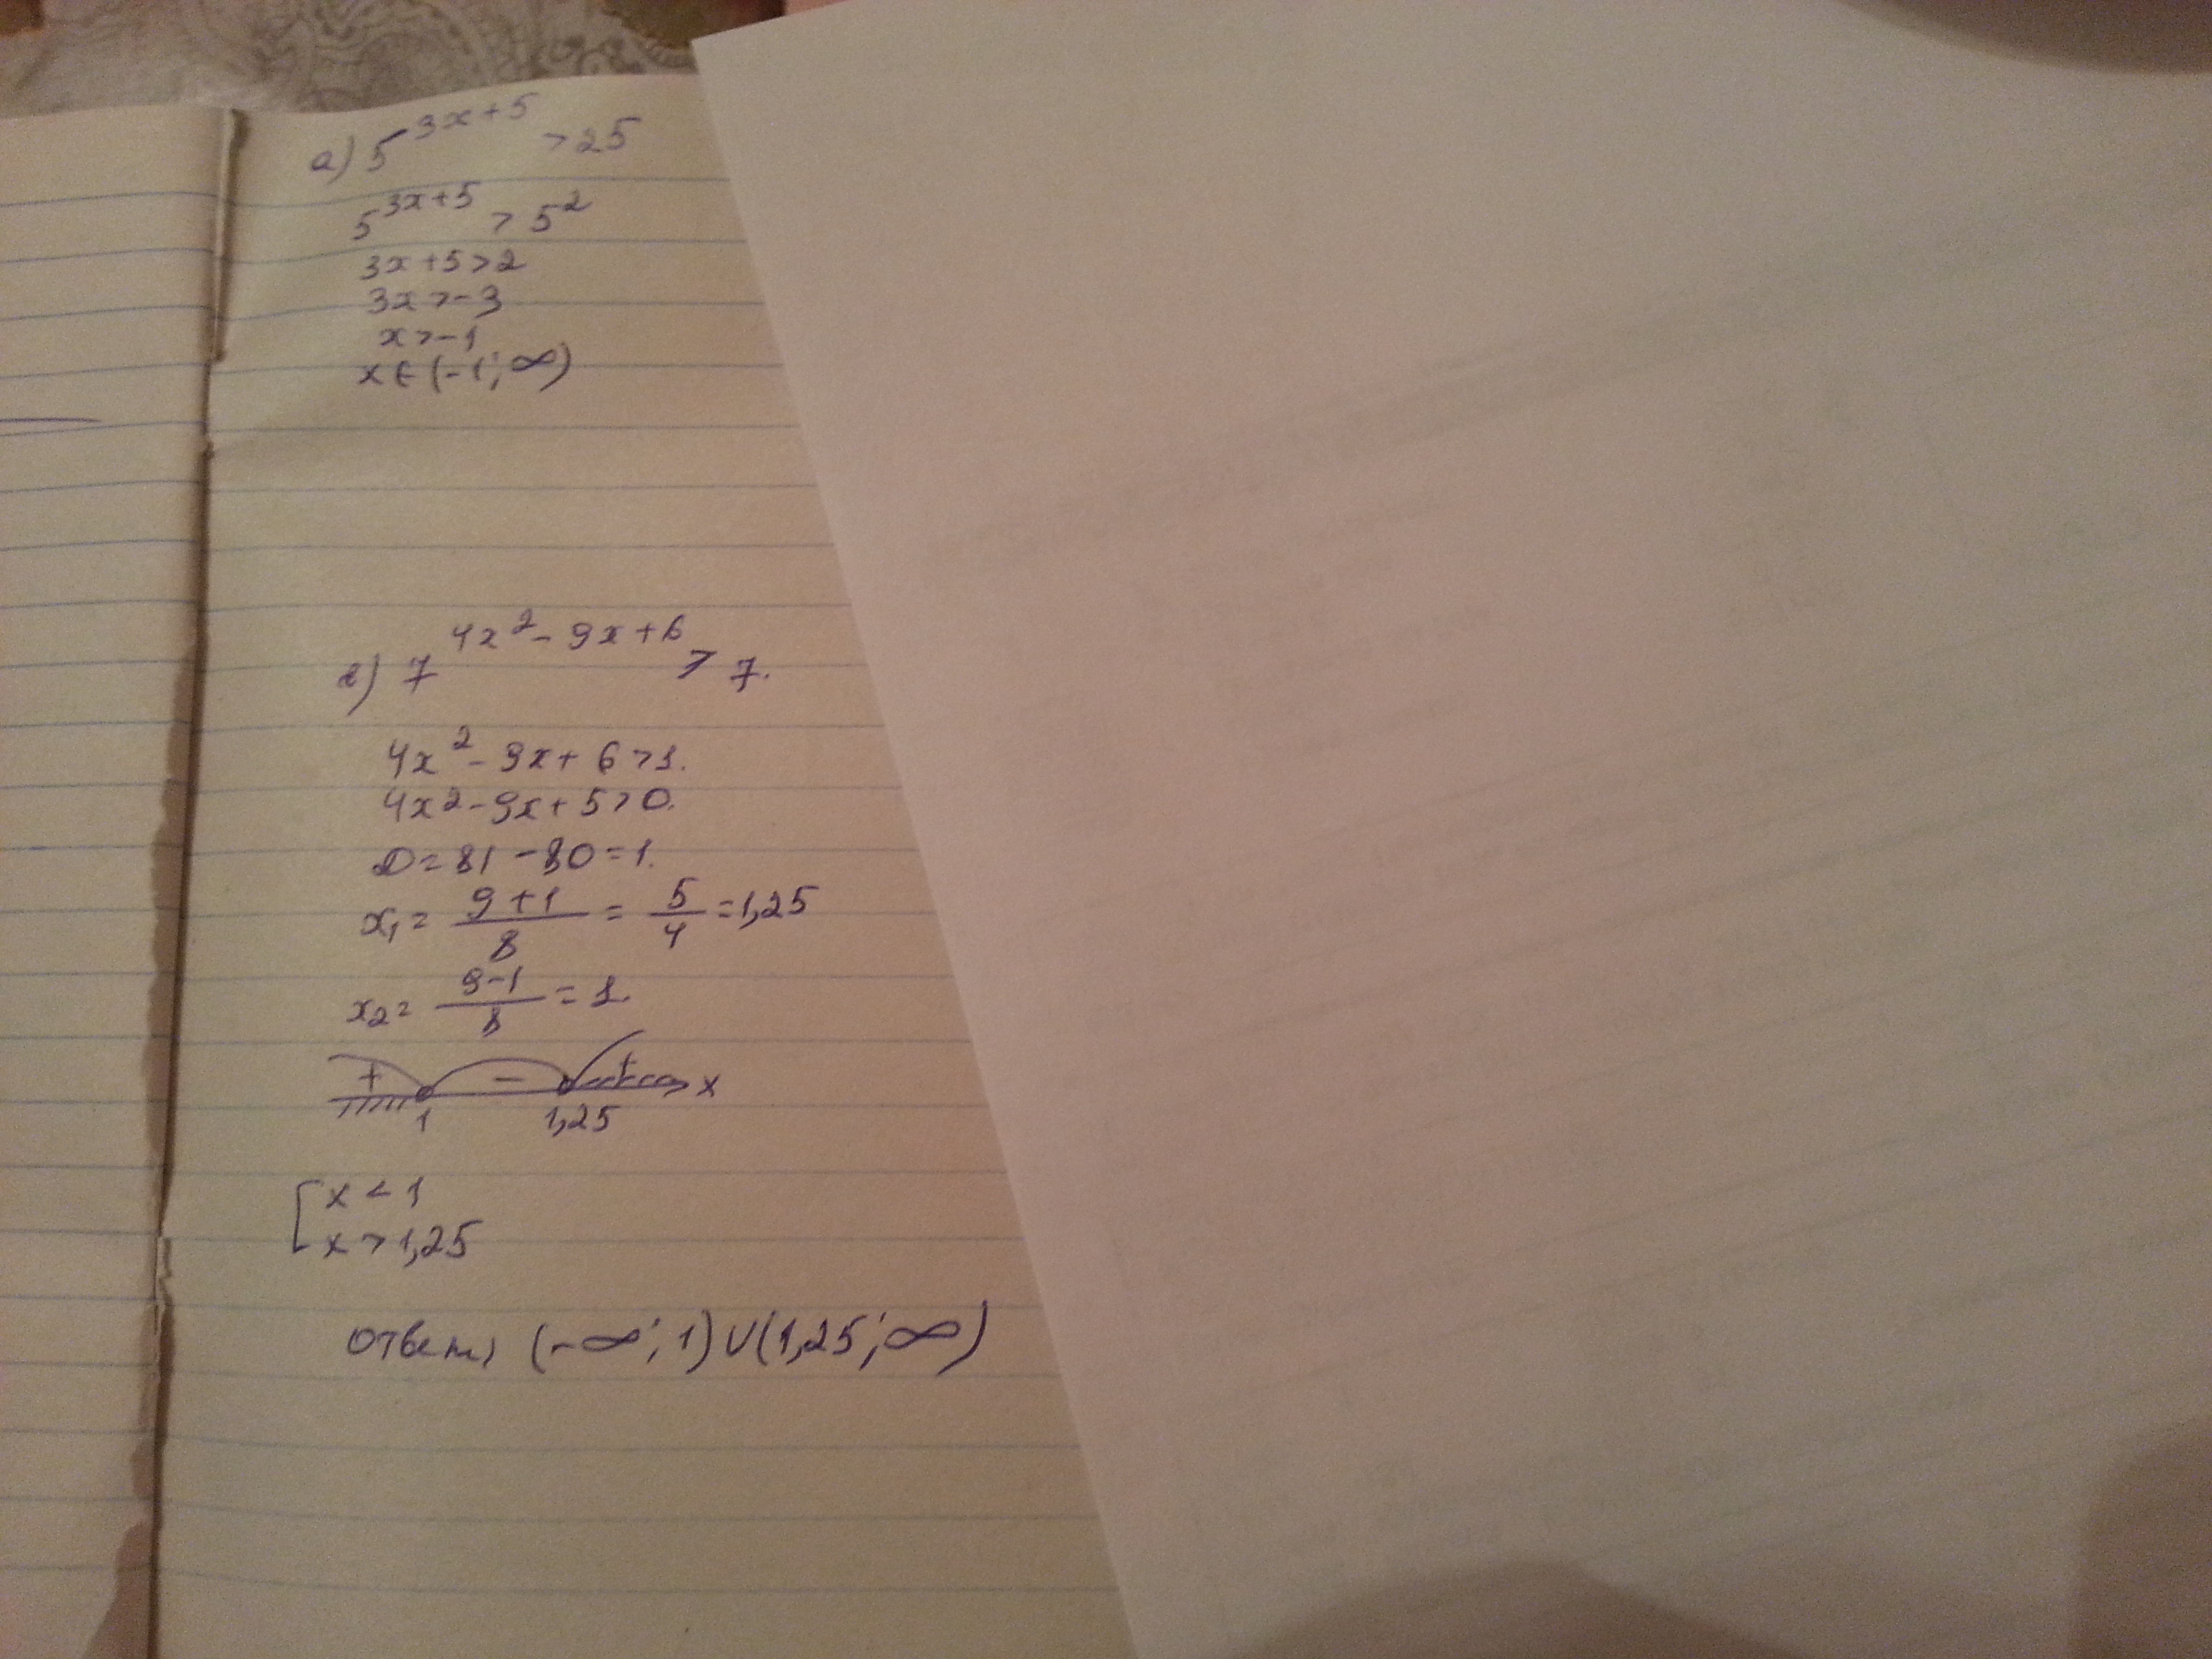 а) 5^{3x+5} > 25
5^{3x+5} > 5^2
3x+5>2
3x>-3
x>-1
x ∈ (-1; ∞)
в) 7^{4x^2-9x+6} > 7.
4x^2-9x+6>1.
4x^2-9x+5>0.
D=81-80=1.
x_1 = \frac{9+1}{8} = \frac{5}{4} = 1,25
x_2 = \frac{9-1}{8} = 1.
+ - + x
1 1,25
[ x < 1
x > 1,25
ответ: (-∞; 1) ∪ (1,25; ∞)